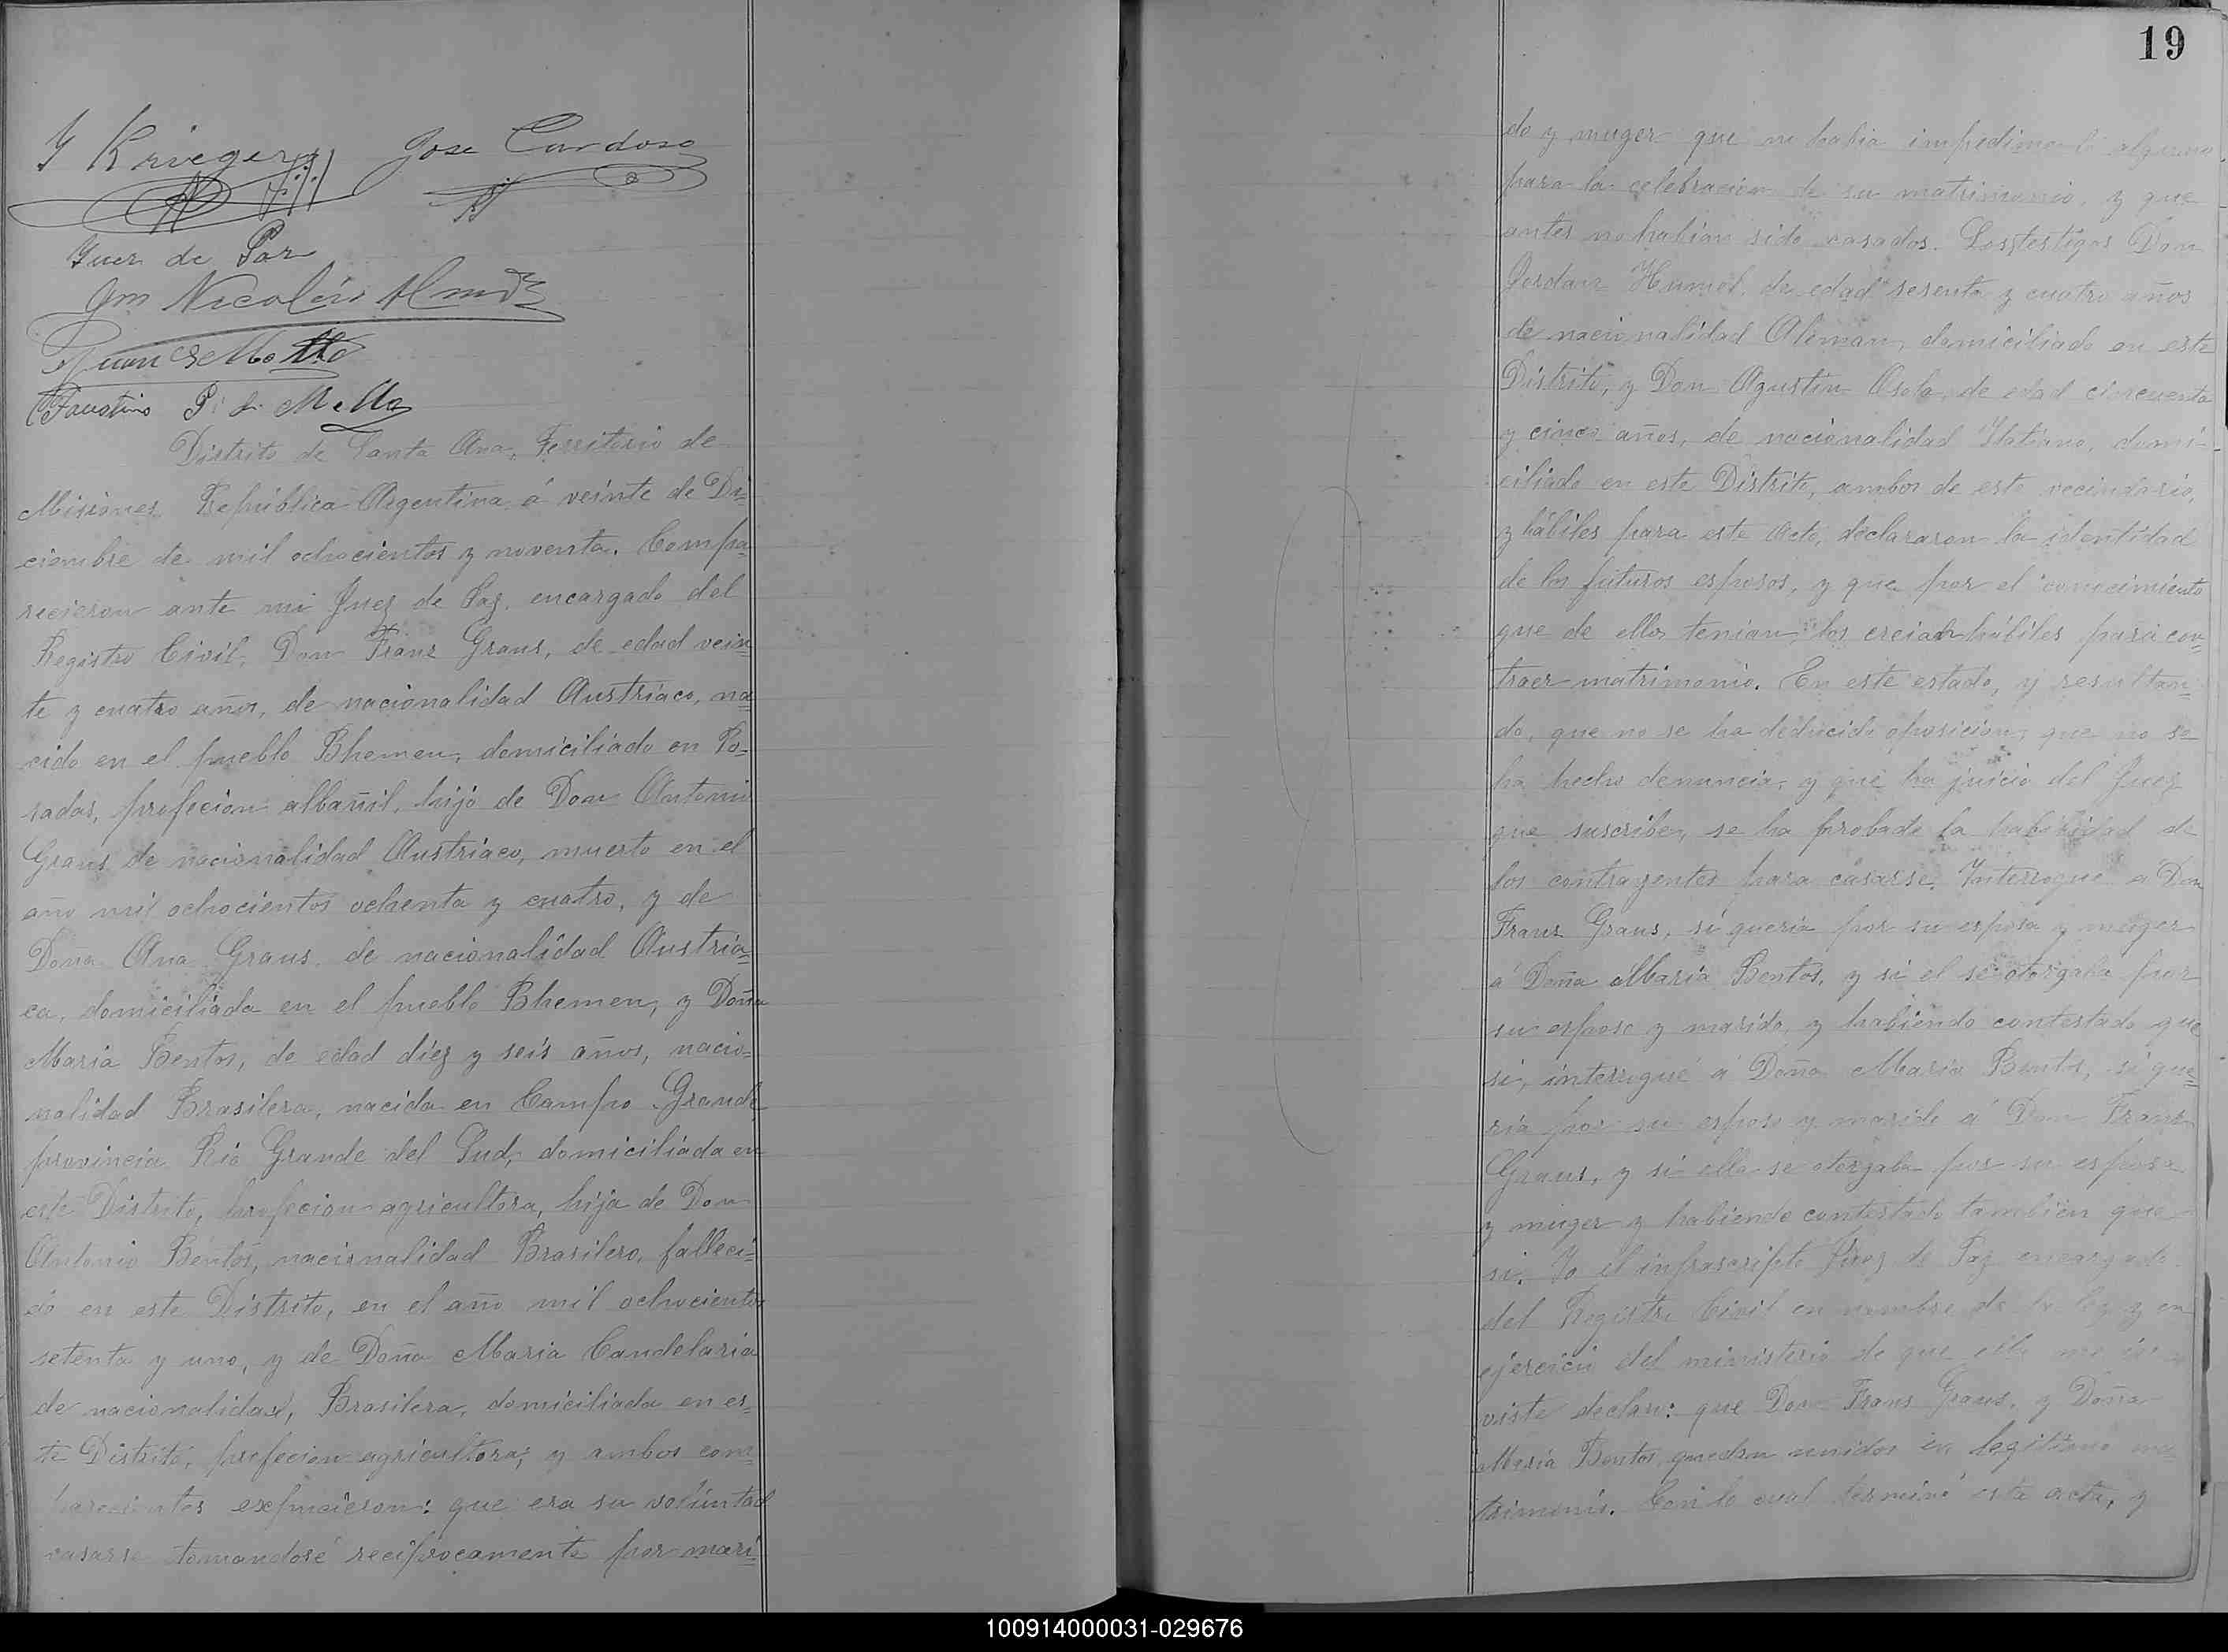 Y Krieger
Jose Cardoso
Juez de Paz
Gm Nicolás
Juan
Faustino P. de Mello
Distrito de Santa Ana, Territorio de
Misiones Republica Argentina á veinte de Di=
ciembre de mil ochocientos y noventa. Compa=
recieron ante mi Juez de Paz encargado del
Registro Civil, Don Franz Graus, de edad vein=
te y cuatro años, de nacionalidad Austriaco, na=
cido en el pueblo Bhemen, domiciliado en Po=
sadas, profecion albañil, hijo de Don Antonio
Graus de nacionalidad Austriaco, muerto en el
año mil ochocientos ochenta y cuatro, y de
Doña Ana Graus de nacionalidad Austria=
ca, domiciliada en el pueblo Bhemen, y Doña
Maria Bentos, de edad diez y seis años, nacio=
nalidad Brasilera, nacida en Campo Grande
provincia Rio Grande del Sud, domiciliada en
este Distrito, profecion agricultora, hija de Don
Antonio Bentos, nacionalidad Brasilero, falleci=
do en este Distrito, en el año mil ochocientos
setenta y uno, y de Doña Maria Candelaria
de nacionalidad, Brasilera, domiciliada en es=
te Distrito, profecion agricultora; y ambos com=
parecientes expucieron: que era su voluntad
casarse tomandosé reciprocamente por mari=
19
do y muger que no habia impedimento alguno
para la celebracion de su matrimonio, y que
antes no habian sido casados. Los testigos Don
Jordan Humel de edad sesenta y cuatro años
de nacionalidad Aleman, domiciliado en este
Distrito, y Don Agustin Asola, de edad cincuenta
y cinco años, de nacionalidad Italiano, domi=
ciliado en este Distrito, ambos de este vecindario,
y hábiles para este Acto, declararon la identidad
de los futuros esposos, y que por el conocimiento
que de ellos tenian, los creian hábiles para con=
traer matrimonio. En este estado, y resultan=
do, que no se ha deducido oposicion, que no se
ha hecho denuncia, y que ha juicio del Juez
que suscribe, se ha probado la habilidad de
los contrayentes para casarse. Interrogué a Don
Franz Graus, si queria por su esposa y muger
a Doña Maria Bentos, y si el se otorgaba por
su esposo y marido, y habiendo contestado que
si, interrogué a Doña Maria Bentos, si que=
ria por su esposo y marido á Don Franz
Graus, y si ella se otorgaba por su esposa
y muger y habiendo contestado tambien que
si. Yo el infrascripto Juez de Paz encargado
del Registro Civil en nombre de la ley y en
ejercicio del ministerio de que ella me in
viste declaro: que Don Frans Graus, y Doña
Maria Bentos, quedan unidos en legitimo ma=
trimonio. Con lo cual terminó esta acta, y
100914000031-029676